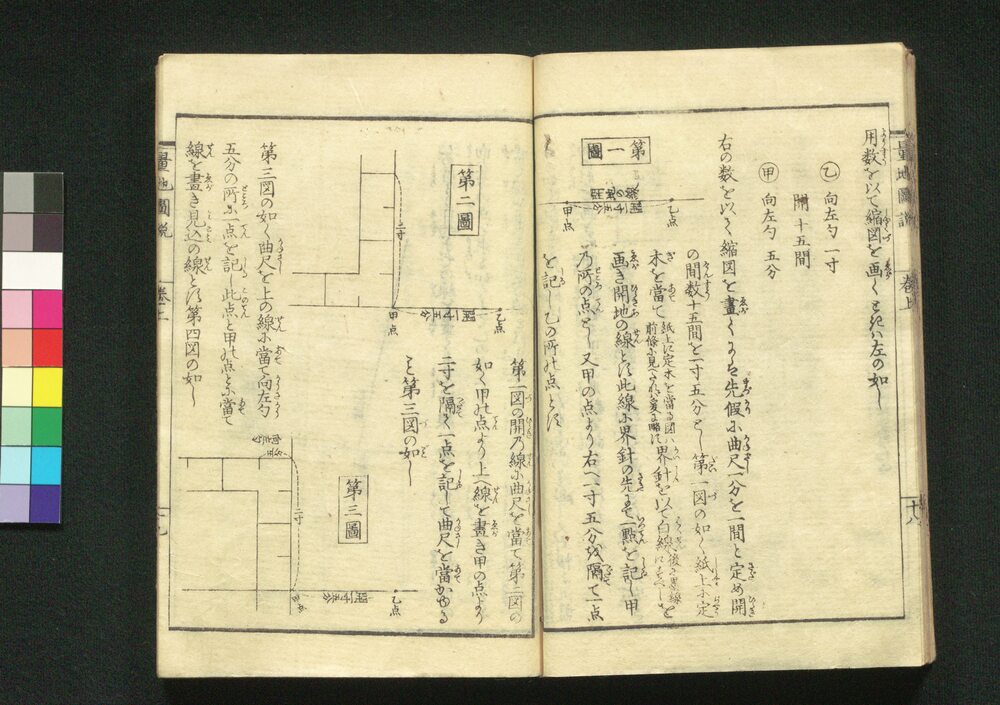 量地圖説 卷上 十八
用数を以て縮図を画くときハ左の如し
乙 向左勾 一寸
開 十五間
甲 向左勾 五分
右の数を以て縮図を畫くにハ先假に曲尺一分を一間と定め開
の間数十五間を一寸五分とし第一図の如く紙上に定
木を當て 界針を以て白線を
画き開地の線とす此線に界針の先にて一點を記し甲
乃所の点とし又甲の点より右へ一寸五分を隔て一点
を記し乙の所の点とす
第一圖
乙点
甲点
第一図の開乃線に曲尺を當て第二図の
如く甲の点より上へ線を畫き甲の点より
二寸を隔て一点を記して曲尺を當かゆる
こと第三図の如し
第二圖
二寸
乙点
甲点
第三圖
二寸
乙点
第三図の如く曲尺を上の線に當て向左勾
五分の所に一点を記し此点と甲の点とに當て
線を畫き見込の線とす第四図の如し
量地圖説